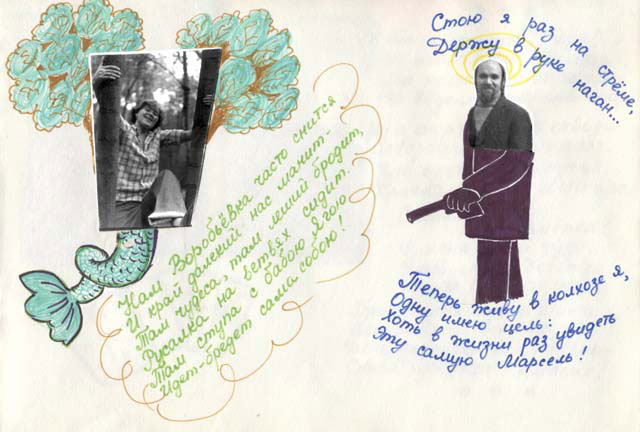 Нам Воробьёвка часто снится
И край далёкий нас манит-
Там чудеса, там леший бродит,
Русалка на ветвях сидит.
Там ступа с бабою Ягою
Идёт-бредёт сама собою!
Стою я раз на стрёме,
Держу в руке наган...
Теперь живу в колхозе я,
Одну имею цель:
Хоть в жизни раз увидеть
Эту самую Марсель!